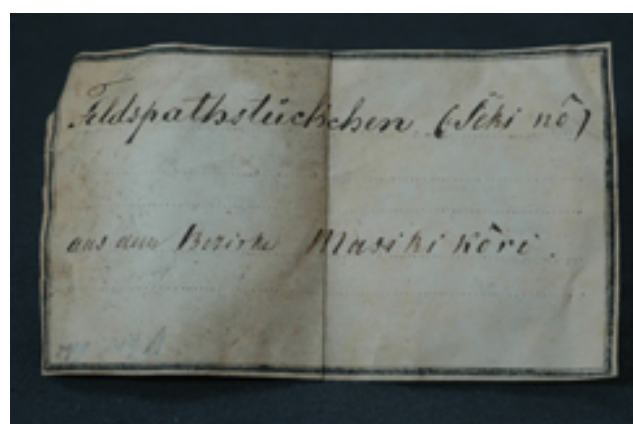 Feldspathstückchen (Sêki nê)
aus dem Bezirke Masiki kôri.